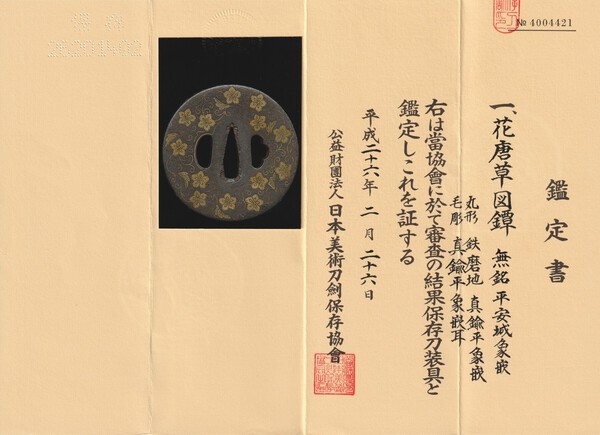 № 4004421
鑑定書
一、花唐草図鐔 無銘 平安城象嵌
丸形 鉄磨地 真鍮平象嵌
毛彫 真鍮平象嵌耳
右は當協會に於て審査の結果保存刀装具と
鑑定しこれを証する
平成二十六年 二月 二十六日
公益財團法人 日本美術刀劍保存協會